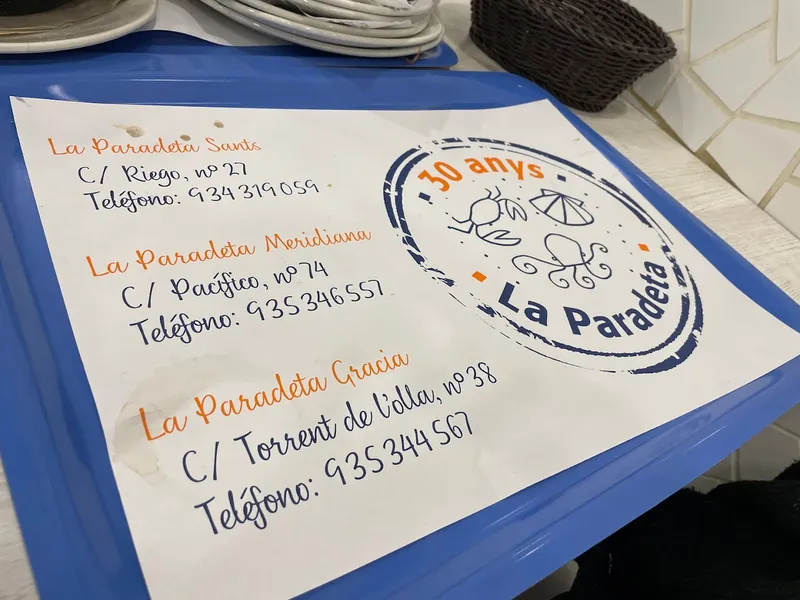 La Paradeta Sants
C/ Riego, nº 27
Teléfono: 934319059
La Paradeta Meridiana
C/ Pacífico, nº 74
Teléfono: 935346557
La Paradeta Gracia
C/ Torrent de l'olla, nº 38
Teléfono: 935344567
30 anys
La Paradeta